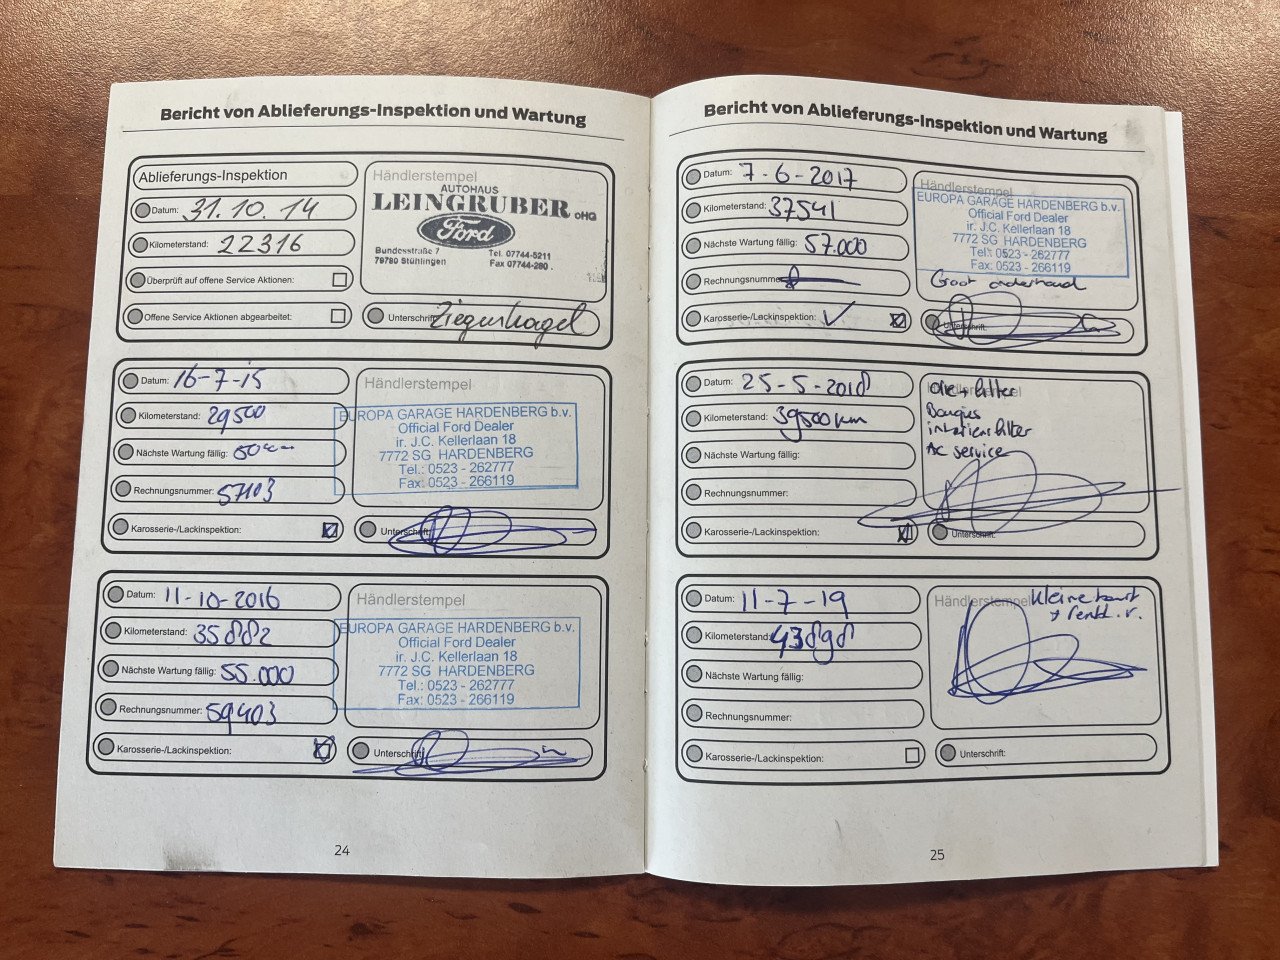 Bericht von Ablieferungs-Inspektion und Wartung
Ablieferungs-Inspektion
Datum: 31.10.14
Kilometerstand: 22316
Überprüft auf offene Service Aktionen:
Offene Service Aktionen abgearbeitet:
Händlerstempel
AUTOHAUS
LEINGRUBER OHG
Ford
Bundesstraße 7 Tel. 07744-5211
79780 Stühlingen Fax 07744-280
Unterschrift:
Datum: 16-7-15
Kilometerstand: 29500
Nächste Wartung fällig:
Rechnungsnummer: 57103
Karosserie-/Lackinspektion:
Händlerstempel
EUROPA GARAGE HARDENBERG b.v.
Official Ford Dealer
ir. J.C. Kellerlaan 18
7772 SG HARDENBERG
Tel.: 0523 - 262777
Fax: 0523 - 266119
Unterschrift:
Datum: 11-10-2016
Kilometerstand: 35882
Nächste Wartung fällig: 55.000
Rechnungsnummer: 59403
Karosserie-/Lackinspektion:
Händlerstempel
EUROPA GARAGE HARDENBERG b.v.
Official Ford Dealer
ir. J.C. Kellerlaan 18
7772 SG HARDENBERG
Tel.: 0523 - 262777
Fax: 0523 - 266119
Unterschrift:
24
Bericht von Ablieferungs-Inspektion und Wartung
Datum: 7-6-2017
Kilometerstand: 37541
Nächste Wartung fällig: 57.000
Rechnungsnummer:
Karosserie-/Lackinspektion:
Händlerstempel
EUROPA GARAGE HARDENBERG b.v.
Official Ford Dealer
ir. J.C. Kellerlaan 18
7772 SG HARDENBERG
Tel.: 0523 - 262777
Fax: 0523 - 266119
Groot onderhoud
Unterschrift:
Datum: 25-5-2018
Kilometerstand: 39500 km
Nächste Wartung fällig:
Rechnungsnummer:
Karosserie-/Lackinspektion:
Händlerstempel
olie + filter
Bougies
interieurfilter
AC service
Unterschrift:
Datum: 11-7-19
Kilometerstand: 43898
Nächste Wartung fällig:
Rechnungsnummer:
Karosserie-/Lackinspektion:
Händlerstempel
kleine beurt
Unterschrift:
25